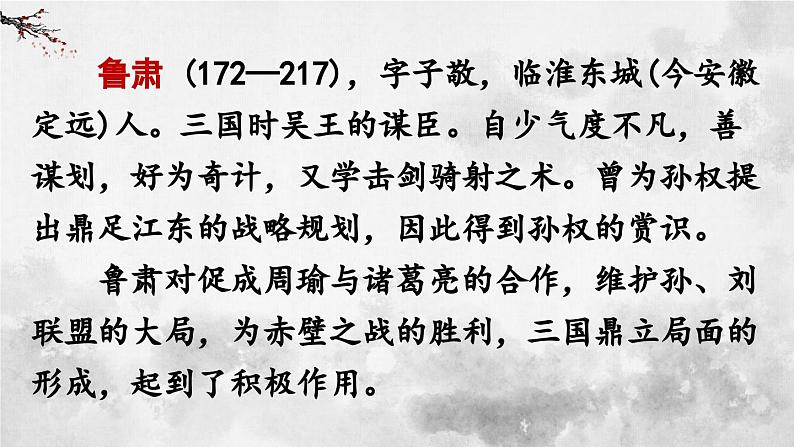 鲁肃 (172—217)，字子敬，临淮东城(今安徽
定远)人。三国时吴王的谋臣。自少气度不凡，善
谋划，好为奇计，又学击剑骑射之术。曾为孙权提
出鼎足江东的战略规划，因此得到孙权的赏识。
鲁肃对促成周瑜与诸葛亮的合作，维护孙、刘
联盟的大局，为赤壁之战的胜利，三国鼎立局面的
形成，起到了积极作用。